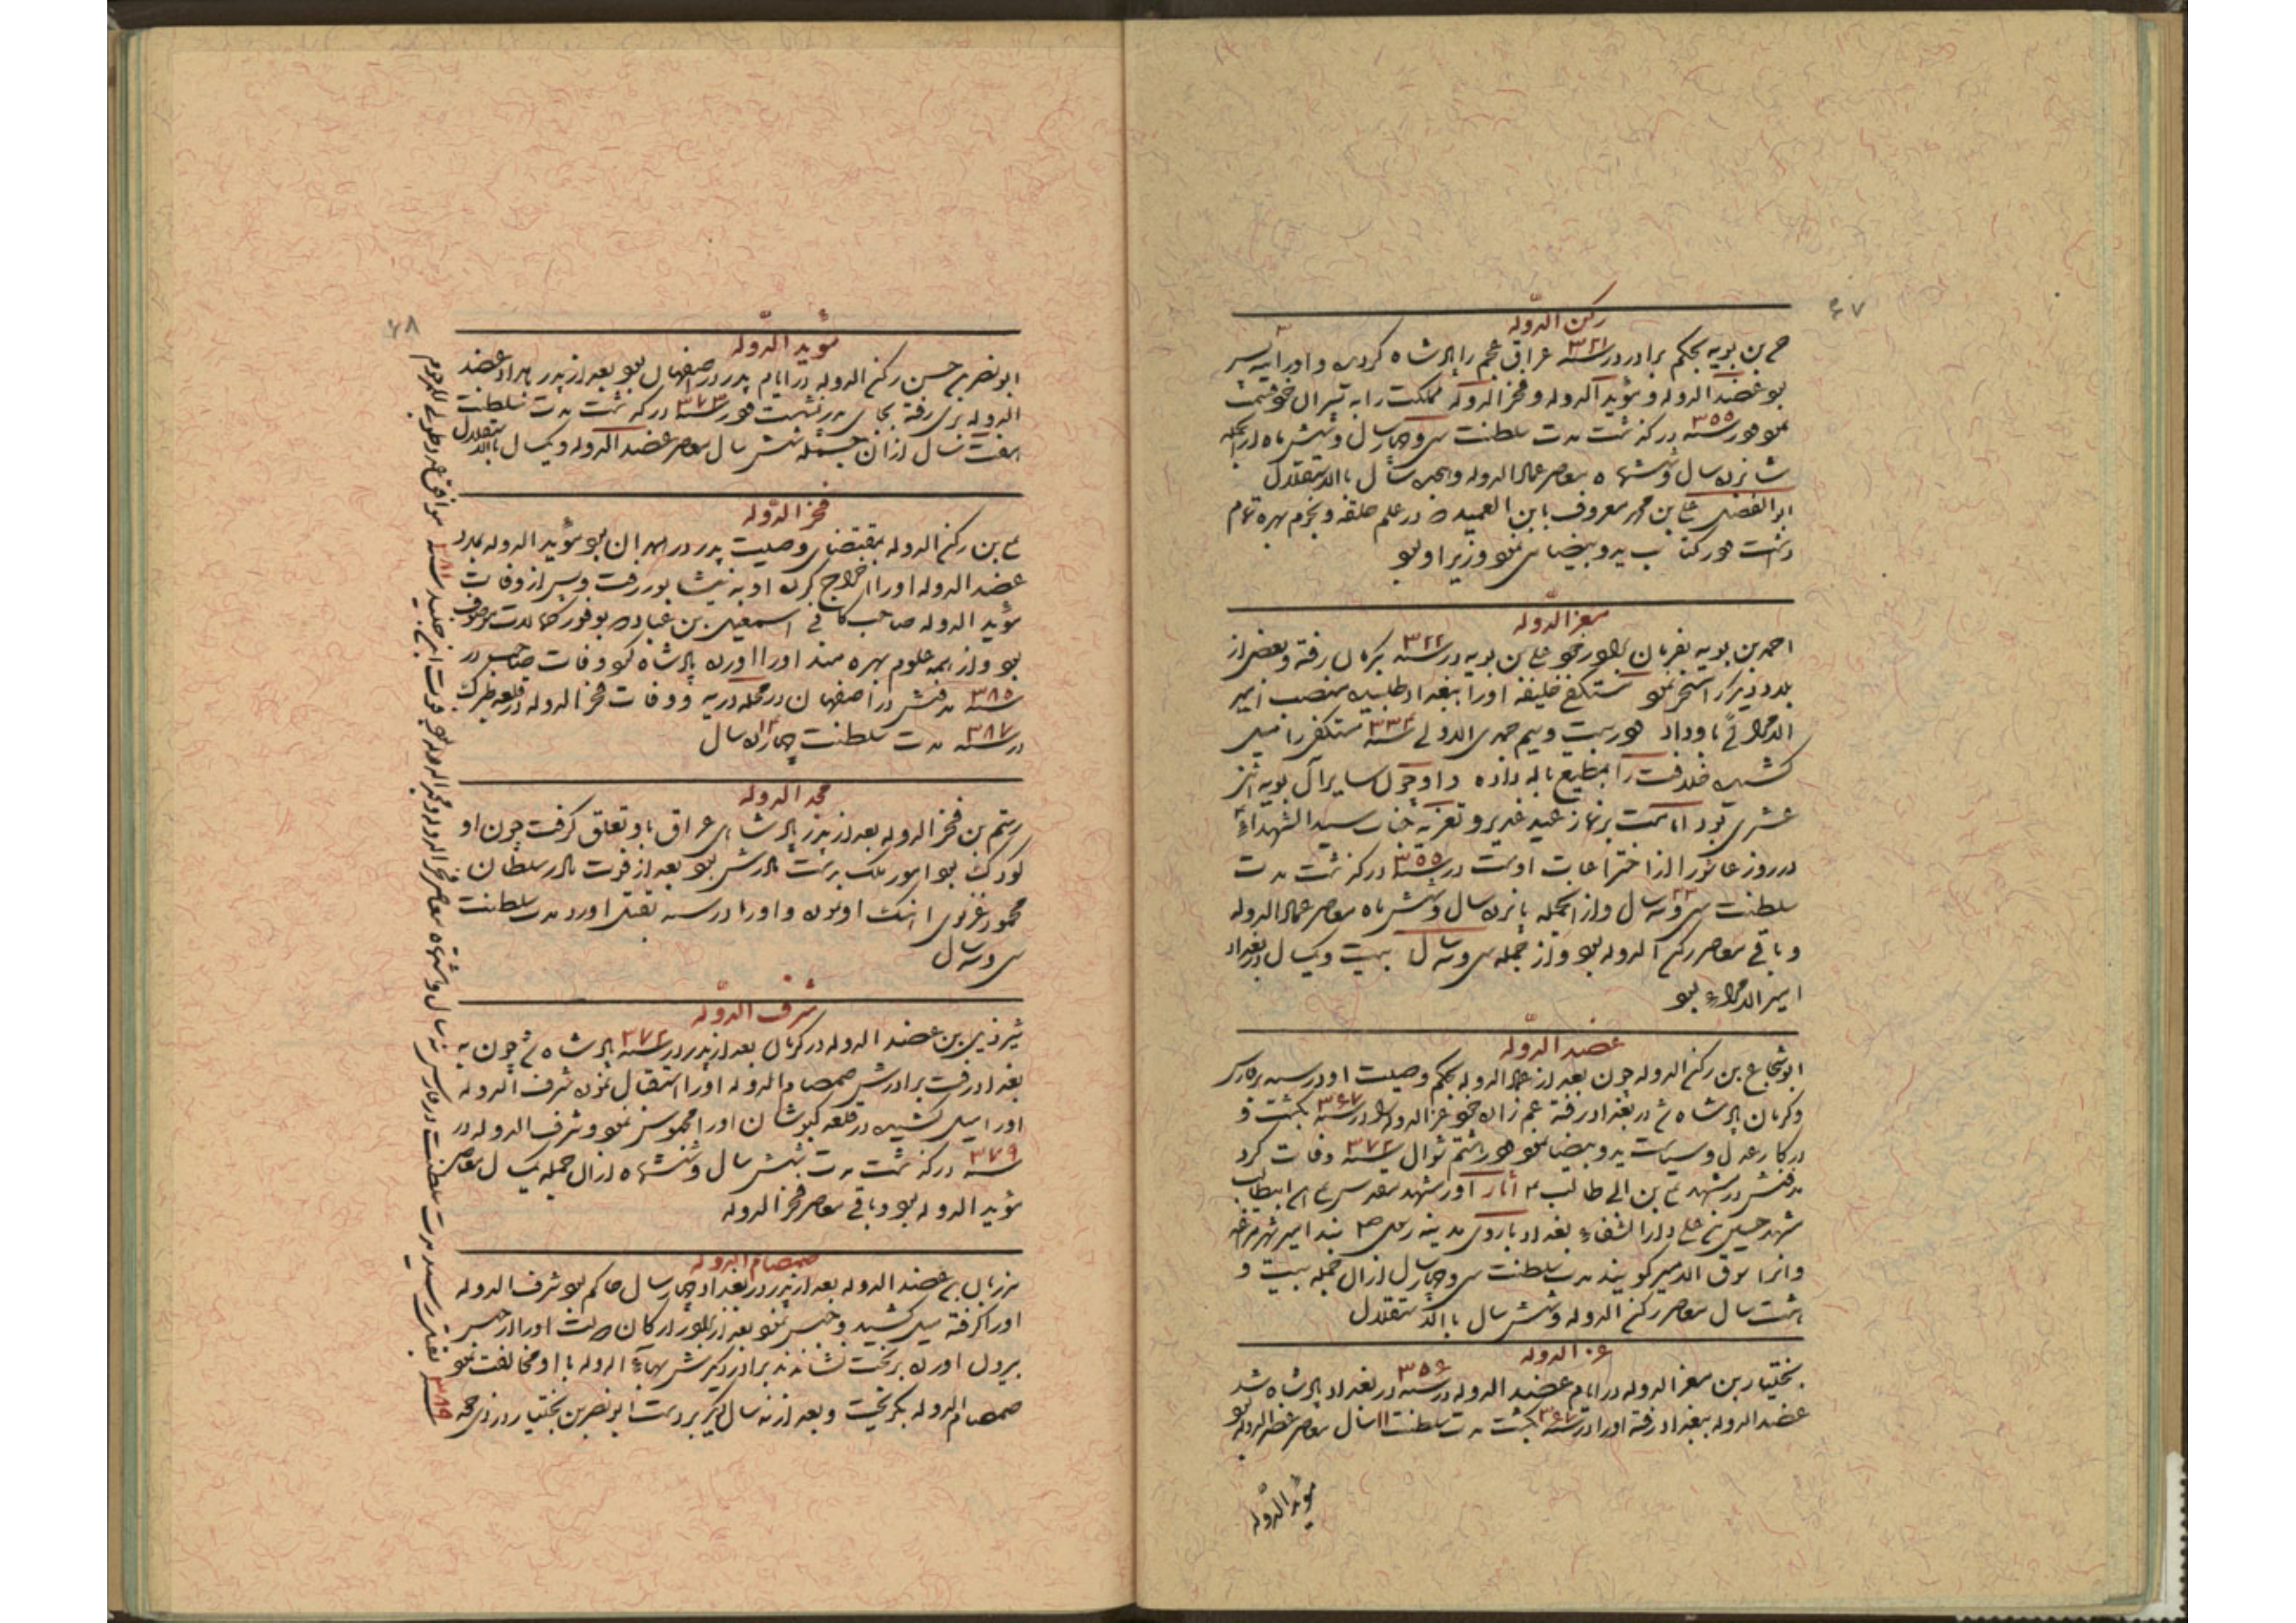 ۶۷
رکن الدوله
حسن بن بویه بحکم برادر در سنه ۳۲۱ عراق عجم را پادشاه کردید و او را سه پسر
بود عضد الدوله و مؤید الدوله و فخر الدوله مملکت را به پسران
در سنه ۳۵۵ درگذشت مدت سلطنت سی و چهار سال و شش ماه از انجمله
شانزده سال و ششماه معاصر عماد الدوله و هجده سال بالاستقلال
ابو الفضل بن محمد معروف بابن العمید که در علم و نجوم بهره تمام
داشت و در کتاب ید و بیضا می نمود وزیر او بود
معز الدوله
احمد بن بویه بفرمان برادر خود علی بن بویه در سنه ۳۲۲ بکرمان رفته و بعضی از
بلاد دیگر را تسخیر نمود مستکفی خلیفه او را ببغداد طلبیده منصب امیر
الامرائی باو داد و در بیست و سیم جمادی الاولی سنه ۳۳۴ مستکفی را میل
کشیده خلافت را بمطیع بالله داده و او چون سایر آل بویه اثنی
عشری بود اقامت بر نماز عید غدیر و تعزیه جناب سید الشهداء
در روز عاشورا از اختراعات اوست در سنه ۳۵۵ درگذشت مدت
سلطنت سی و سه سال و از انجمله پانزده سال و شش ماه معاصر عماد الدوله
و باقی معاصر رکن الدوله بود و از جمله سی و سه سال بیست و یکسال در بغداد
امیر الامراء بود
عضد الدوله
ابو شجاع بن رکن الدوله چون بعد از عماد الدوله بحکم وصیت او در سنه بر فارس
و کرمان پادشاه شد در بغداد رفته عم زاده خود عز الدوله را در سنه ۳۶۷ بکشت و
در کار عدل و سیاست ید و بیضا نمود و در هشتم شوال سنه ۳۷۲ وفات کرد
مدفنش در مشهد علی بن ابی طالب ع آثار او مشهد مقدس علی ابن ابیطالب
مشهد حسین بن علی دار الشفاء بغداد باروی مدینه رسول ص بند امیر
و انرا سوق الامیر کویند مدت سلطنت سی و چهار سال از ان جمله بیست و
هشت سال معاصر رکن الدوله و شش سال بالاستقلال
عز الدوله
بختیار بن معز الدوله در ایام عضد الدوله در سنه ۳۵۶ در بغداد پادشاه شد
عضد الدوله ببغداد رفته او را در سنه ۳۶۷ بکشت مدت سلطنت ۱۱ سال معاصر عضد الدوله بود
مؤید الدوله
۶۸
مؤید الدوله
ابو نصر بن حسن رکن الدوله در ایام پدر در اصفهان بود بعد از پدر بامداد عضد
الدوله بری رفته بجای پدر نشست و در سنه ۳۷۳ درگذشت مدت سلطنت
هفت سال از ان جمله شش سال معاصر عضد الدوله و یکسال بالاستقلال
فخر الدوله
علی بن رکن الدوله بمقتضای وصیت پدر در همدان بود مؤید الدوله بمدد
عضد الدوله او را اخراج کرده او به نیشابور رفت و پس از وفات
مؤید الدوله صاحب کافی اسمعیل بن عباد که بوفور کمالات موصوف
بود و از همه علوم بهره مند او را اورده پادشاه کرد وفات صاحب در
سنه ۳۸۵ مدفنش در اصفهان در محله دریه و وفات فخر الدوله در قلعه طبرک
در سنه ۳۸۷ مدت سلطنت چهارده سال
مجد الدوله
رستم بن فخر الدوله بعد از پدر پادشاهی عراق باو تعلق کرفت چون او
کودک بود امور ملک بدست مادرش بود بعد از فوت مادر سلطان
محمود غزنوی اهنک او نموده و او را در سنه بقتل اورد مدت سلطنت
سی و سه سال
شرف الدوله
شیرذیل بن عضد الدوله در کرمان بعد از پدر در سنه ۳۷۲ پادشاه شد چون به
بغداد رفت برادرش صمصام الدوله او را استقبال نموده شرف الدوله
او را میل کشیده در قلعه کیوشان او را محبوس نمود و شرف الدوله در
سنه ۳۷۹ درگذشت مدت شش سال و ششماه از ان جمله یکسال معاصر
مؤید الدوله بود و باقی معاصر فخر الدوله
صمصام الدوله
مرزبان بن عضد الدوله بعد از پدر در بغداد چهار سال حاکم بود شرف الدوله
او را کرفته میل کشید و حبس نمود بعد از برادر ارکان دولت او را از حبس
بیرون اورده بر تخت نشاندند برادر دیگرش بهاء الدوله با او مخالفت نمود
صمصام الدوله بکریخت و بعد از نه سال دیگر بر دست ابو نصر بن بختیار در ذی حجه
سنه ۳۸۹ بقتل رسید مدت سلطنت در فارس نه سال و ششماه معاصر فخر الدوله و مجد الدوله بود